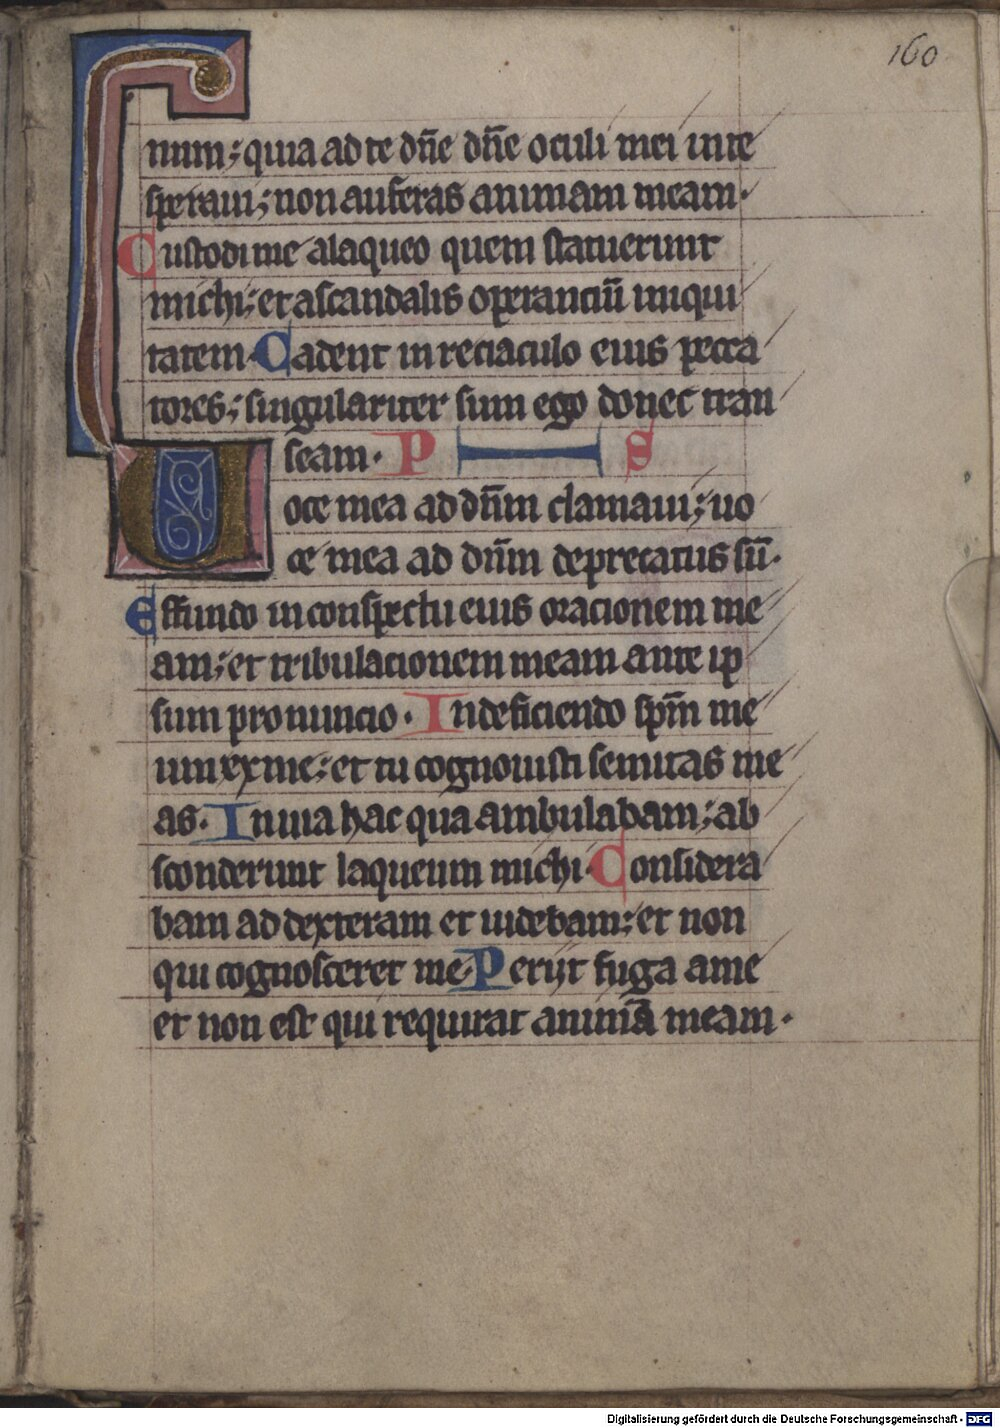 160
num; quia ad te dñe dñe oculi mei in te
speraui; non auferas animam meam.
Custodi me a laqueo quem statuerunt
michi; et a scandalis operanciū iniqui
tatem. Cadent in reciaculo eius pecca
tores; singulariter sum ego donec tran
seam. P S
Uoce mea ad dñm clamaui; uo
ce mea ad dñm deprecatus sū.
Effundo in conspectu eius oracionem me
am; et tribulacionem meam ante ip
sum pronuncio. In deficiendo spm̄ me
um ex me; et tu cognouisti semitas me
as. In uia hac qua ambulabam; ab
sconderunt laqueum michi. Considera
bam ad dexteram et uidebam; et non
qui cognosceret me. Perijt fuga a me
et non est qui requirat animā meam.
Digitalisierung gefördert durch die Deutsche Forschungsgemeinschaft - DFG